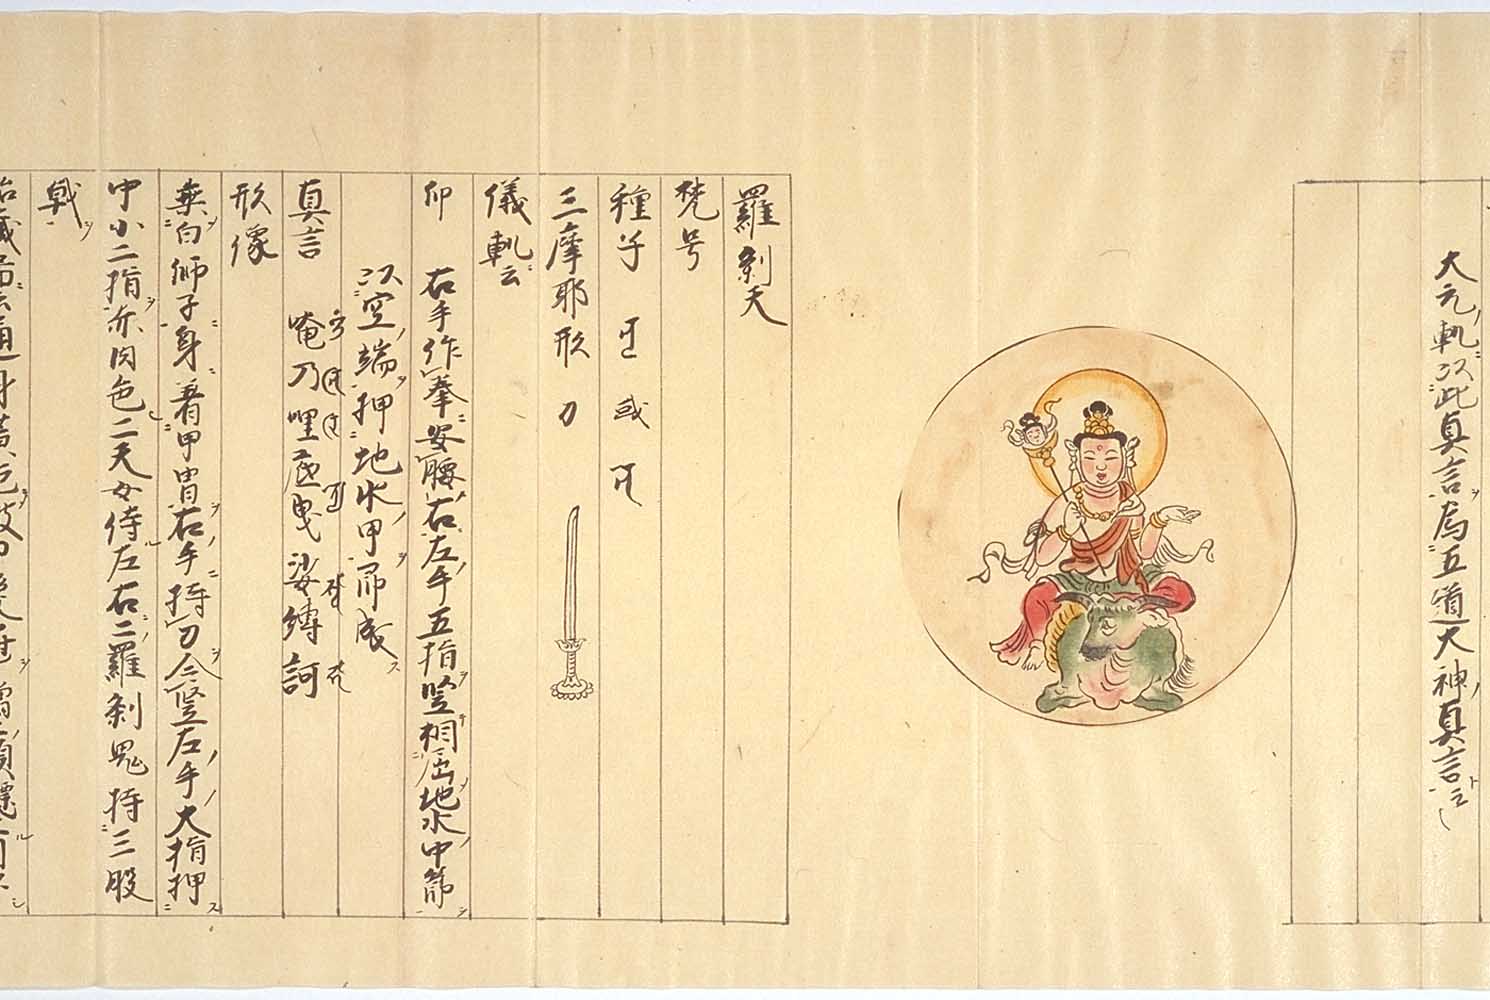 大元軌以此真言為五道大神真言云〻
羅刹天
梵号
種子 或
三摩耶形 刀
儀軌云
右手作拳安腰右左手五指竪相屈地水中節
仰
以空端押地水甲即成
真言 唵乃哩底曳娑縛訶
形像
乗白師子身着甲冑右手持刀令竪左手大指押
中小二指赤肉色二天女侍左右二羅刹鬼持三股
戟